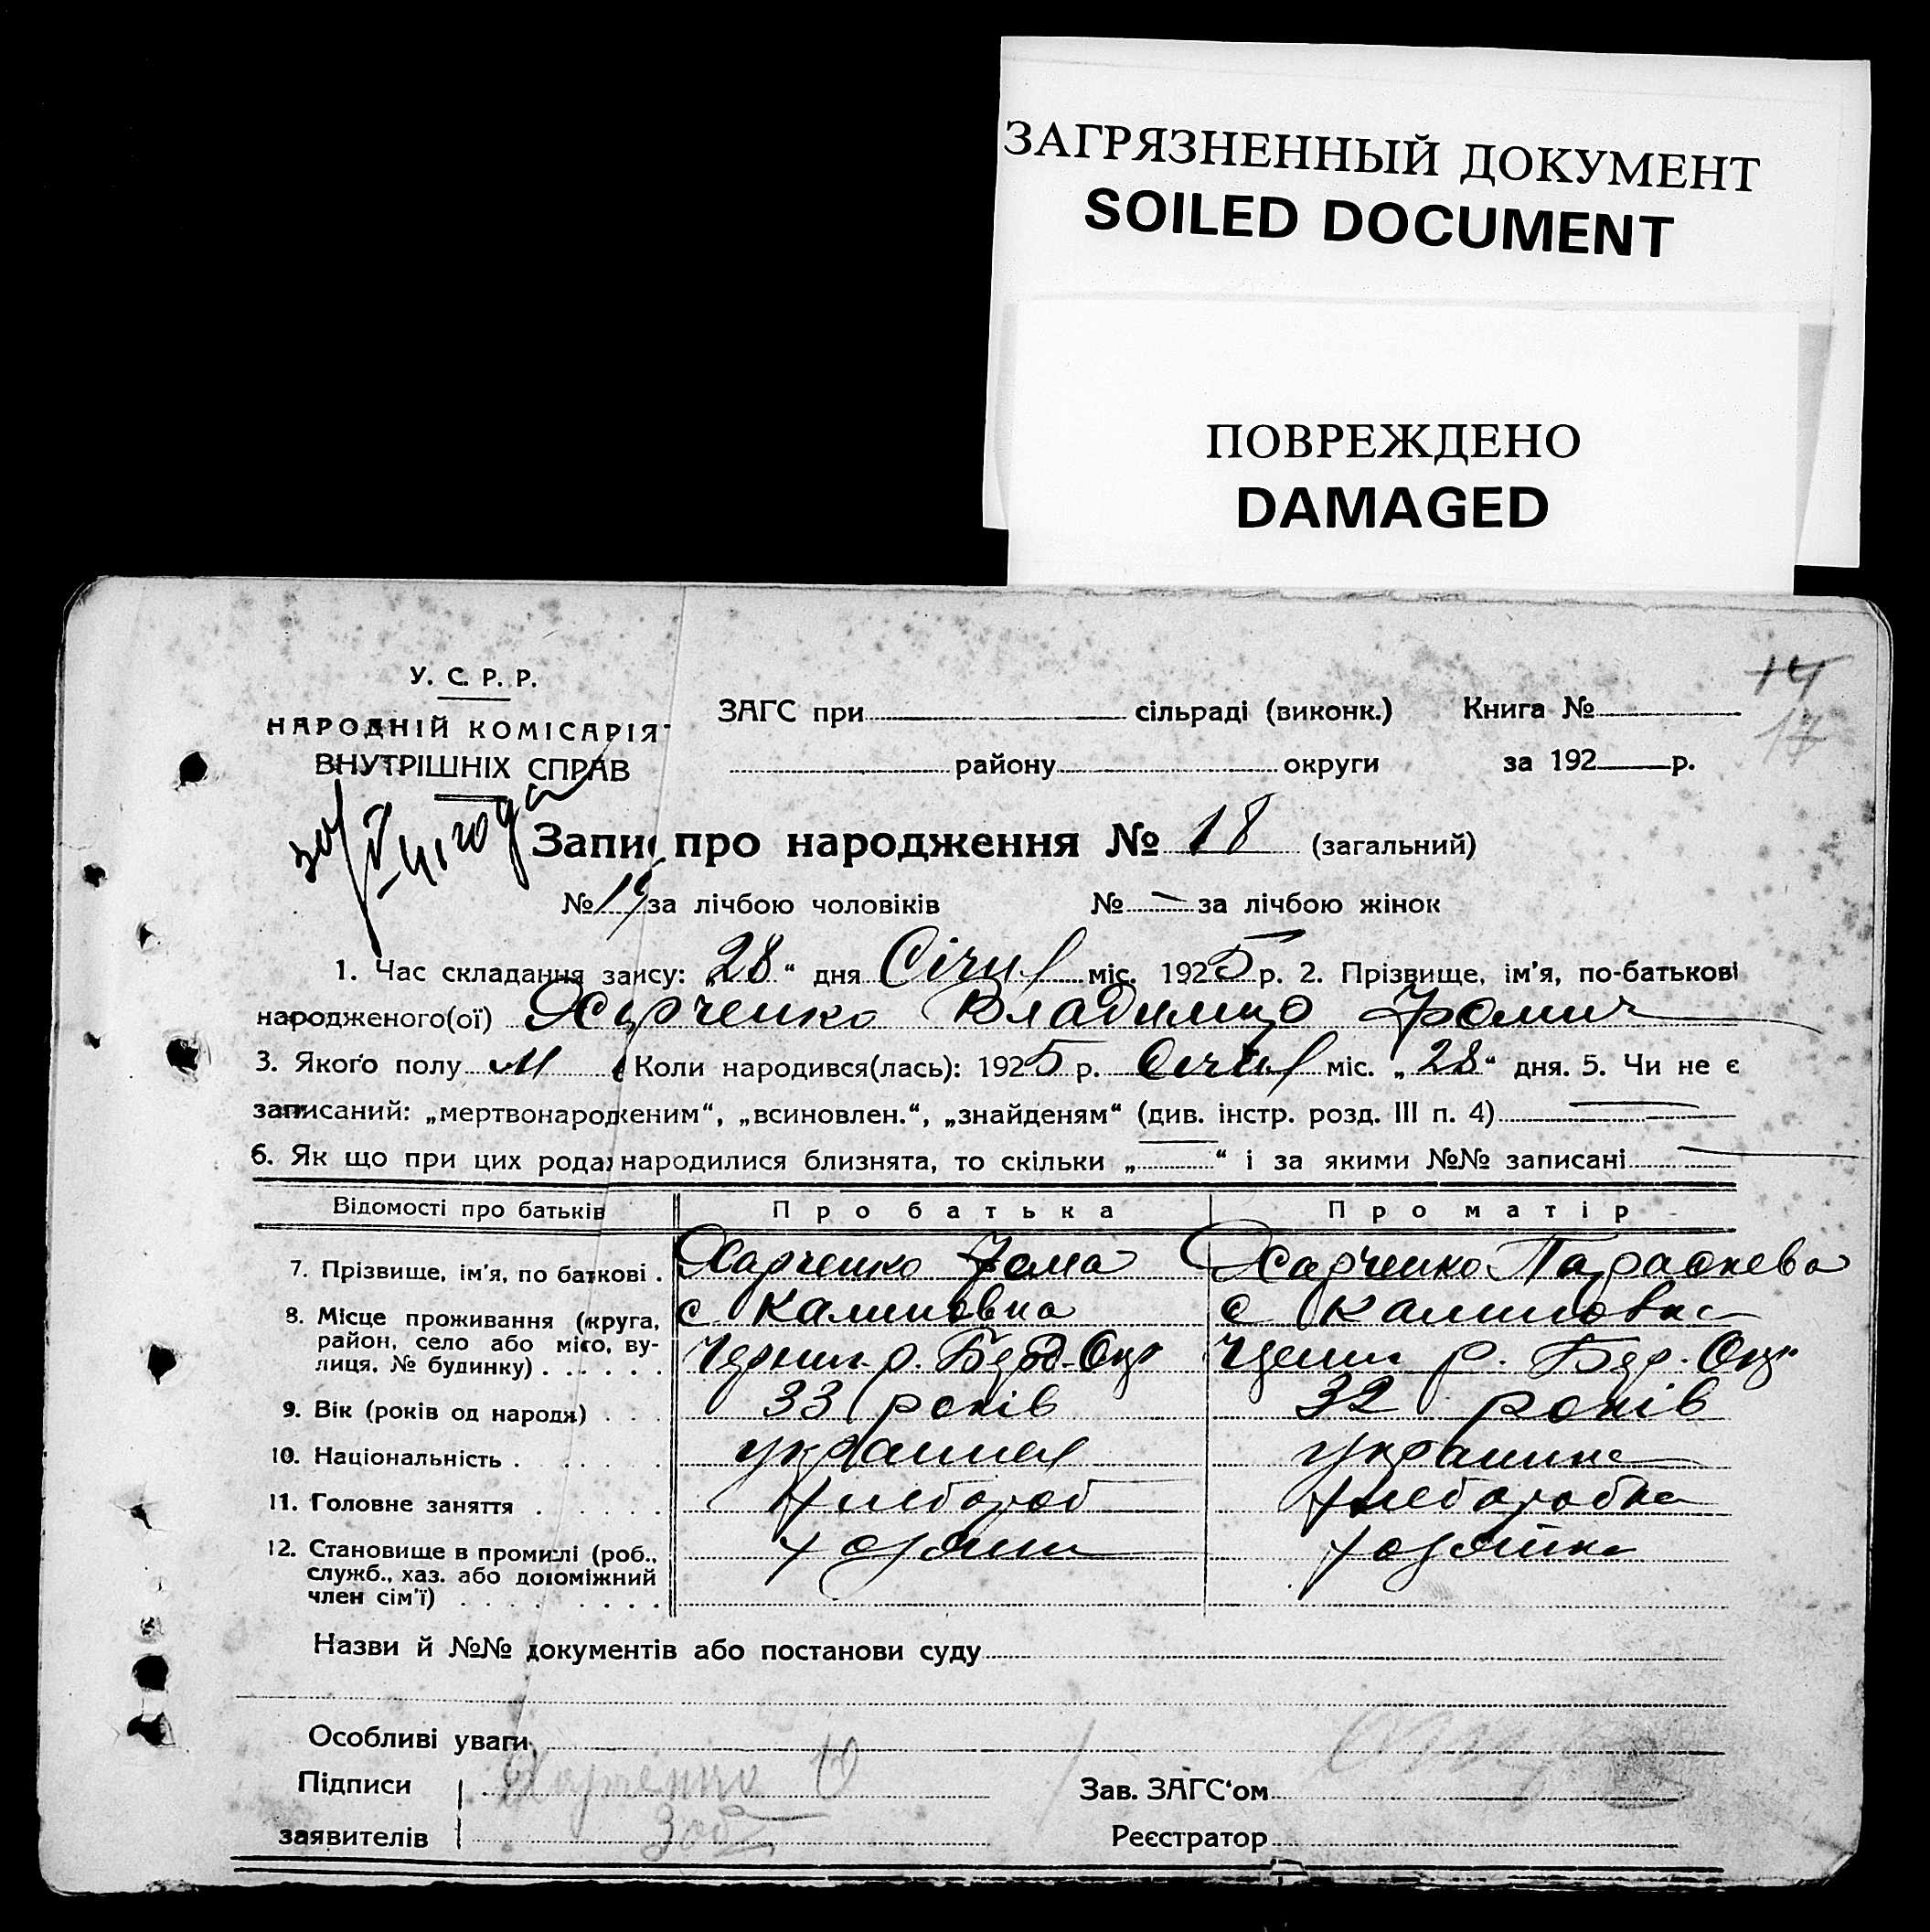 ЗАГРЯЗНЕННЫЙ ДОКУМЕНТ
SOILED DOCUMENT
ПОВРЕЖДЕНО
DAMAGED
14
17
У. С. Р. Р.
НАРОДНІЙ КОМІСАРІЯ
ВНУТРІШНІХ СПРАВ
ЗАГС при сільраді (виконк.) Книга №
району округи за 192 р.
Запис про народження № 18 (загальний)
№ за лічбою чоловіків № — за лічбою жінок
1. Час складання запису: „28“ дня Січня міс. 1925 р. 2. Прізвище, ім'я, по-батькові
народженого(ої) Харченко Владимир Фомич
3. Якого полу м Коли народився(лась): 1925 р. Січня міс. „28“ дня. 5. Чи не є
записаний: „мертвонародженим“, „всиновлен.“, „знайденям“ (див. інстр. розд. III п. 4) —
6. Як що при цих родах народилися близнята, то скільки „—“ і за якими №№ записані —
Відомості про батьків Про батька Про матір
7. Прізвище, ім'я, по батькові . Харченко Фома Харченко Параскева
8. Місце проживання (округа, с Калиновка с Калиновка
район, село або місто, ву-
лиця, № будинку) . . . . . . Черниг. р. Берд. Окр Черниг р. Бер. Окр.
9. Вік (років од народж) . . . 33 років 32 років
10. Національність . . . . . українец українка
11. Головне заняття . . . . . хлебороб хлеборобка
12. Становище в промислі (роб., хозяин хозяйка
служб., хаз. або допоміжний
член сім'ї) . . . . . . . . .
Назви й №№ документів або постанови суду
Особливі уваги
Підписи Харченко Зав. ЗАГС'ом
заявителів Реєстратор